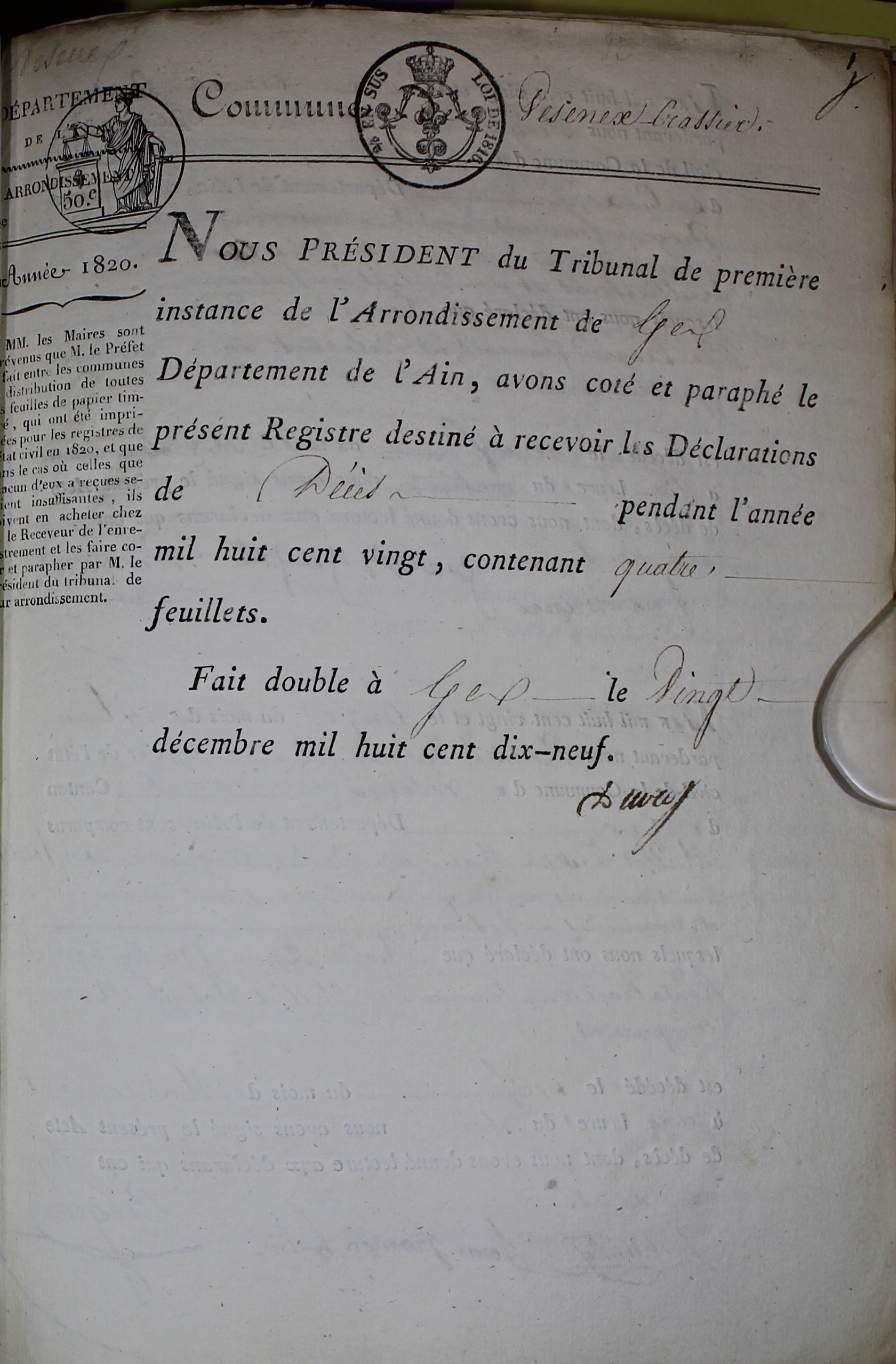 DÉPARTEMENT
DE L'
ARRONDISSEMENT
50.c
Commune
EN SUS
LOI DE 1816.
Vesenex Crassier.
Année 1820.
MM. les Maires sont
révenus que M. le Préfet
fait entre les communes
distribution de toutes
s feuilles de papier tim-
é, qui ont été impri-
ées pour les registres de
tat civil en 1820, et que
ns le cas où celles que
acun d'eux a reçues se-
ient insuffisantes, ils
ivent en acheter chez
le Receveur de l'enre-
strement et les faire co-
r et parapher par M. le
résident du tribunal de
ur arrondissement.
NOUS PRÉSIDENT du Tribunal de première
instance de l'Arrondissement de Gex
Département de l'Ain, avons coté et paraphé le
présent Registre destiné à recevoir les Déclarations
de Décès pendant l'année
mil huit cent vingt, contenant quatre
feuillets.
Fait double à Gex le Vingt
décembre mil huit cent dix-neuf.